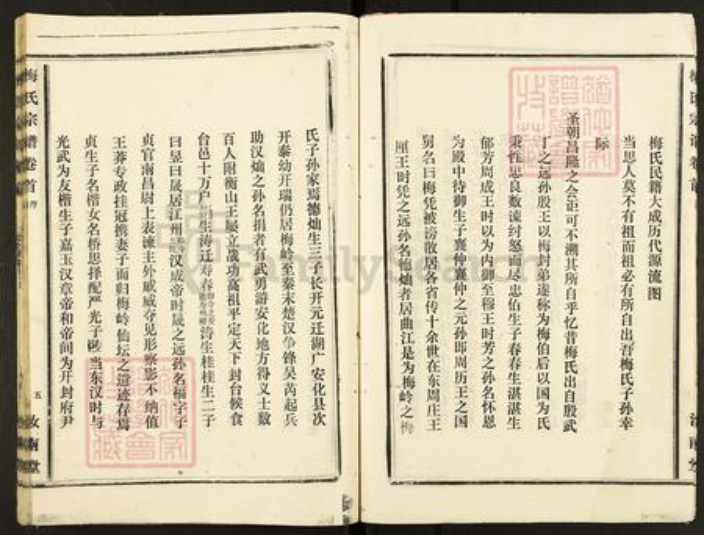 梅氏民籍大成历代源流图
当思人莫不有祖而祖必有所自出吾梅氏子孙幸
际
圣朝昌隆之会讵可不溯其所自乎忆昔梅氏出自殷武
丁之远孙殷王以梅封弟遂称为梅伯后以国为氏
秉性忠良数谏纣怒而尽忠伯生子春春生湛湛生
郁芳周成王时以为内御至穆王时芳之孙名怀恩
为殿中待御生子襄仲襄仲之元孙即周历王之国
舅名曰梅凭被谤散居各省传十余世在东周庄王
厘王时凭之远孙名德灿者居曲江是为梅岭之梅
氏子孙家焉德灿生三子长开元迁湖广安化县次
开泰幼开瑞仍居梅岭至秦末楚汉争锋吴芮起兵
助汉灿之孙名捐者有武勇游安化地方得义士数
百人附衡山王屡立战功高祖平定天下封台候食
台邑十万户 生涛迁寿春 涛生桂桂生二子
曰昱曰晟居江州 汉成帝时晟之远孙名福字子
贞官南昌尉上表谏主外戚威夺见形察影不纳值
王莽专政挂冠携妻子而归梅岭仙坛之遗迹存焉
贞生子名楷女名桥思择配严光子陵当东汉时与
光武为友楷生子嘉玉汉章帝和帝间为开封府尹
梅氏宗谱卷首
序
五
汝南堂
FamilySearch